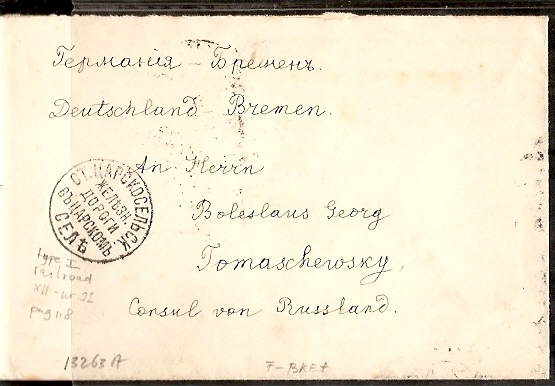 Германія - Бременъ.
Deutschland Bremen.
An Herrn
Boleslaus Georg
Tomaschewsky,
Consul von Russland.
СТ. ЦАРСКОСЕЛЬСК.
ЖЕЛѢЗН.
ДОРОГИ
ВЪ ЦАРСКОМЪ
СЕЛѢ
type I
railroad
XII - nr. 21
pag 118
13263A